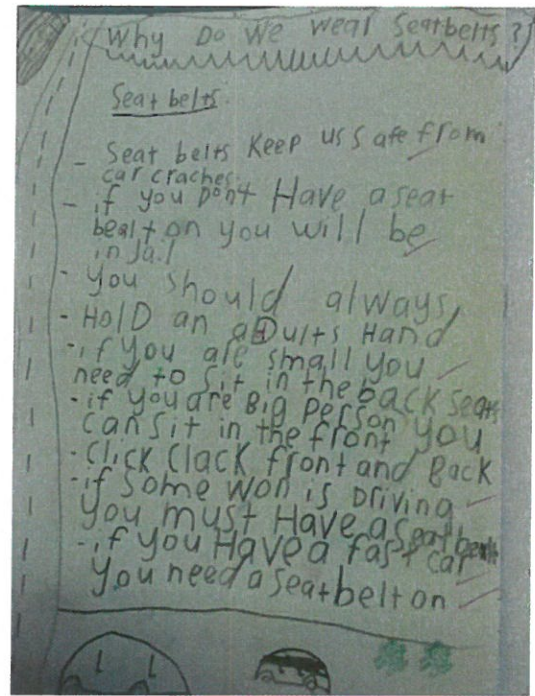 Why Do We wear Seatbelts?
Seat belts
- Seat belts Keep us safe from
car craches.
- if you Don't Have a seat
bealt on you will be
in Jail
- you should always
- HolD an aDults Hand
- if you are small you
need to sit in the back seats
- if you are Big Person you
can sit in the front
- Click Clack front and Back
- if some won is Driving
you must Have a seat
- if you Have a fast car
you need a seatbelt on